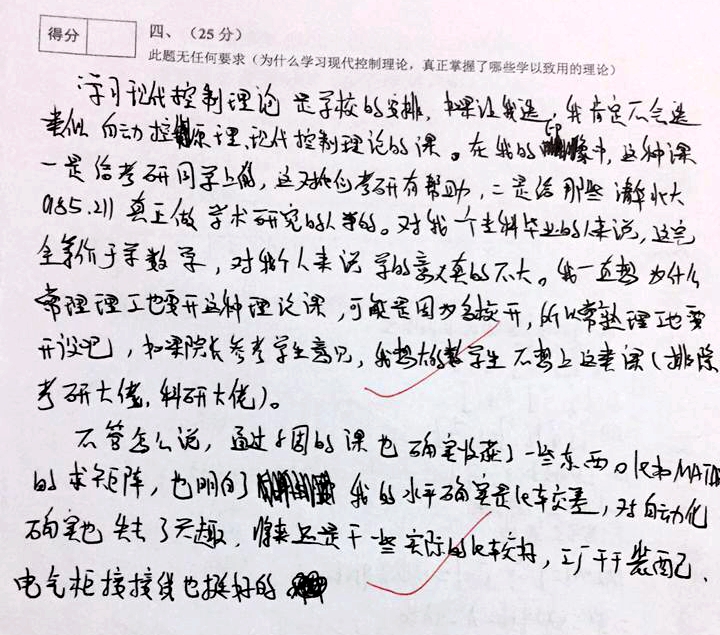 得分
四、（25分）
此题无任何要求（为什么学习现代控制理论，真正掌握了哪些学以致用的理论）
学习现代控制理论是学校的安排，如果让我选，我肯定不会选
类似自动控制原理、现代控制理论的课。在我的印象中，这种课
一是给考研同学上的，这对他们考研有帮助，二是给那些清华北大
985.211真正做学术研究的人学的。对我一个本科毕业的人来说，这完
全等价于学数学，对我个人来说学的意义真的不大。我一直想为什么
常熟理工也要开这种理论课，可能是因为多校开，所以常熟理工也要
开设吧，如果院长参考学生意见，我想大多数学生不想上这类课（排除
考研大佬，科研大佬）。
不管怎么说，通过4周的课也确实收获了一些东西。比如MATLAB
的求矩阵，也明白了我的水平确实是比较差，对自动化
确实也失去了兴趣，将来还是干一些实际的比较好，工厂干干装配、
电气柜接接线也挺好的